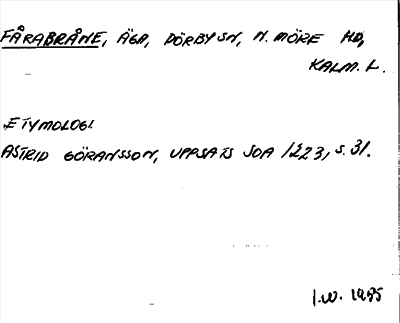 FÅRABRÅNE, ÄGA, DÖRBY SN, N. MÖRE HD,
KALM. L.
ETYMOLOGI
ASTRID GÖRANSSON, UPPSATS SOA 1223, S. 31.
I.W. 1975